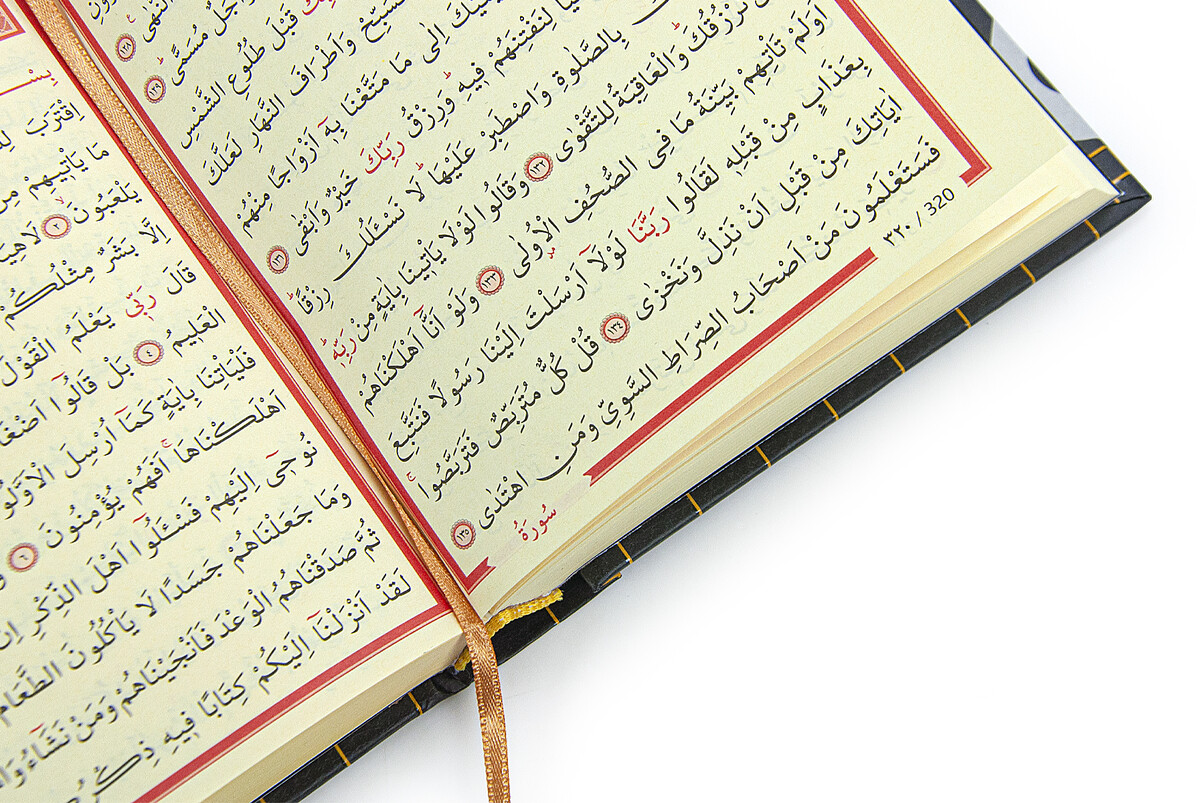 النُّهٰى ﴿١٢٨﴾
وَاَجَلٌ مُسَمًّىۜ ﴿١٢٩﴾
قَبْلَ طُلُوعِ الشَّمْسِ
فَسَبِّحْ وَاَطْرَافَ النَّهَارِ لَعَلَّكَ
اِلٰى مَا مَتَّعْنَا بِه۪ٓ اَزْوَاجًا مِنْهُمْ
لِنَفْتِنَهُمْ ف۪يهِۜ وَرِزْقُ رَبِّكَ خَيْرٌ وَاَبْقٰى ﴿١٣١﴾
بِالصَّلٰوةِ وَاصْطَبِرْ عَلَيْهَاۜ لَا نَسْـَٔلُكَ رِزْقًاۜ
نَرْزُقُكَۜ وَالْعَاقِبَةُ لِلتَّقْوٰى ﴿١٣٢﴾ وَقَالُوا لَوْلَا يَأْت۪ينَا بِاٰيَةٍ مِنْ رَبِّه۪ۜ
اَوَلَمْ تَأْتِهِمْ بَيِّنَةُ مَا فِي الصُّحُفِ الْاُو۫لٰى ﴿١٣٣﴾ وَلَوْ اَنَّٓا اَهْلَكْنَاهُمْ
بِعَذَابٍ مِنْ قَبْلِه۪ لَقَالُوا رَبَّنَا لَوْلَٓا اَرْسَلْتَ اِلَيْنَا رَسُولًا فَنَتَّبِعَ
اٰيَاتِكَ مِنْ قَبْلِ اَنْ نَذِلَّ وَنَخْزٰى ﴿١٣٤﴾ قُلْ كُلٌّ مُتَرَبِّصٌ فَتَرَبَّصُواۚ
فَسَتَعْلَمُونَ مَنْ اَصْحَابُ الصِّرَاطِ السَّوِيِّ وَمَنِ اهْتَدٰى ﴿١٣٥﴾
٣٢٠ / 320
سُورَةُ
بِسْــ
اِقْتَرَبَ
مَا يَأْت۪يهِمْ مِنْ
يَلْعَبُونَۙ ﴿٢﴾ لَاهِيَةً
اِلَّا بَشَرٌ مِثْلُكُمْ
قَالَ رَبّ۪ي يَعْلَمُ الْقَوْلَ
الْعَل۪يمُ ﴿٤﴾ بَلْ قَالُٓوا اَضْغَاثُ
فَلْيَأْتِنَا بِاٰيَةٍ كَمَٓا اُرْسِلَ الْاَوَّلُونَ
اَهْلَكْنَاهَاۚ اَفَهُمْ يُؤْمِنُونَ ﴿٦﴾
نُوح۪ٓي اِلَيْهِمْ فَسْـَٔلُٓوا اَهْلَ الذِّكْرِ اِنْ
وَمَا جَعَلْنَاهُمْ جَسَدًا لَا يَأْكُلُونَ الطَّعَامَ
ثُمَّ صَدَقْنَاهُمُ الْوَعْدَ فَاَنْجَيْنَاهُمْ وَمَنْ نَشَٓاءُ
لَقَدْ اَنْزَلْنَٓا اِلَيْكُمْ كِتَابًا ف۪يهِ ذِكْرُكُمْ